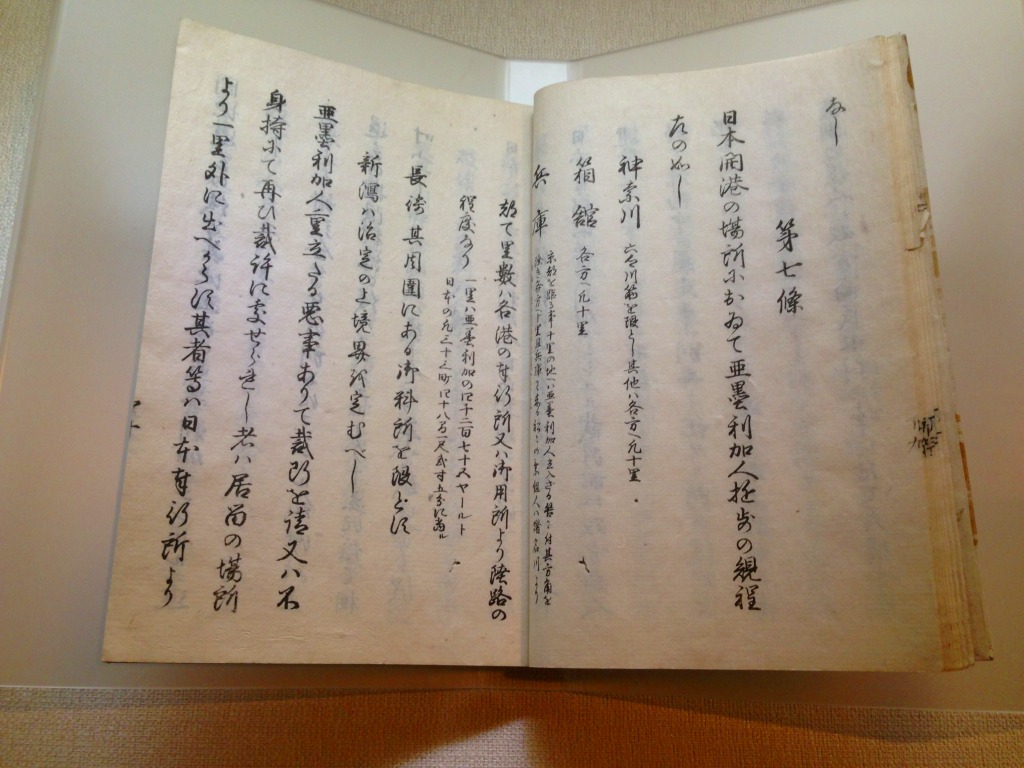 なし
第七條
日本開港の場所におゐて亜墨利加人遊歩の規程
左の如し
神奈川 六郷川筋を限とし其他ハ各方へ凡十里
箱館 各方へ凡十里
兵庫 京都を距る事十里の地へハ亜墨利加人立入さる筈に付其方角を
除き各方へ十里且兵庫に来る船々の乗組人ハ猪名川より
都て里数ハ各港の奉行所又ハ御用所より陸路の
程度なり 一里ハ亜墨利加の四千二百七十五ヤールト
日本の凡三十三町四十八間一尺弐寸五分に当ル
長崎 其周囲にある御料所を限とす
新潟ハ治定の上境界を定むへし
亜墨利加人重立たる悪事ありて裁断を請又ハ不
身持にて再ひ裁許に処せられし者ハ居留の場所
より一里外に出へからす其者等ハ日本奉行所より